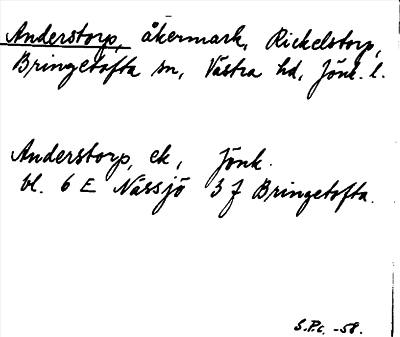 Anderstorp, åkermark, Rickelstorp,
Bringetofta sn, Västra hd, Jönk. l.
Anderstorp, ek, Jönk.
bl. 6 E Nässjö 3 f Bringetofta.
S.P.c. -58.